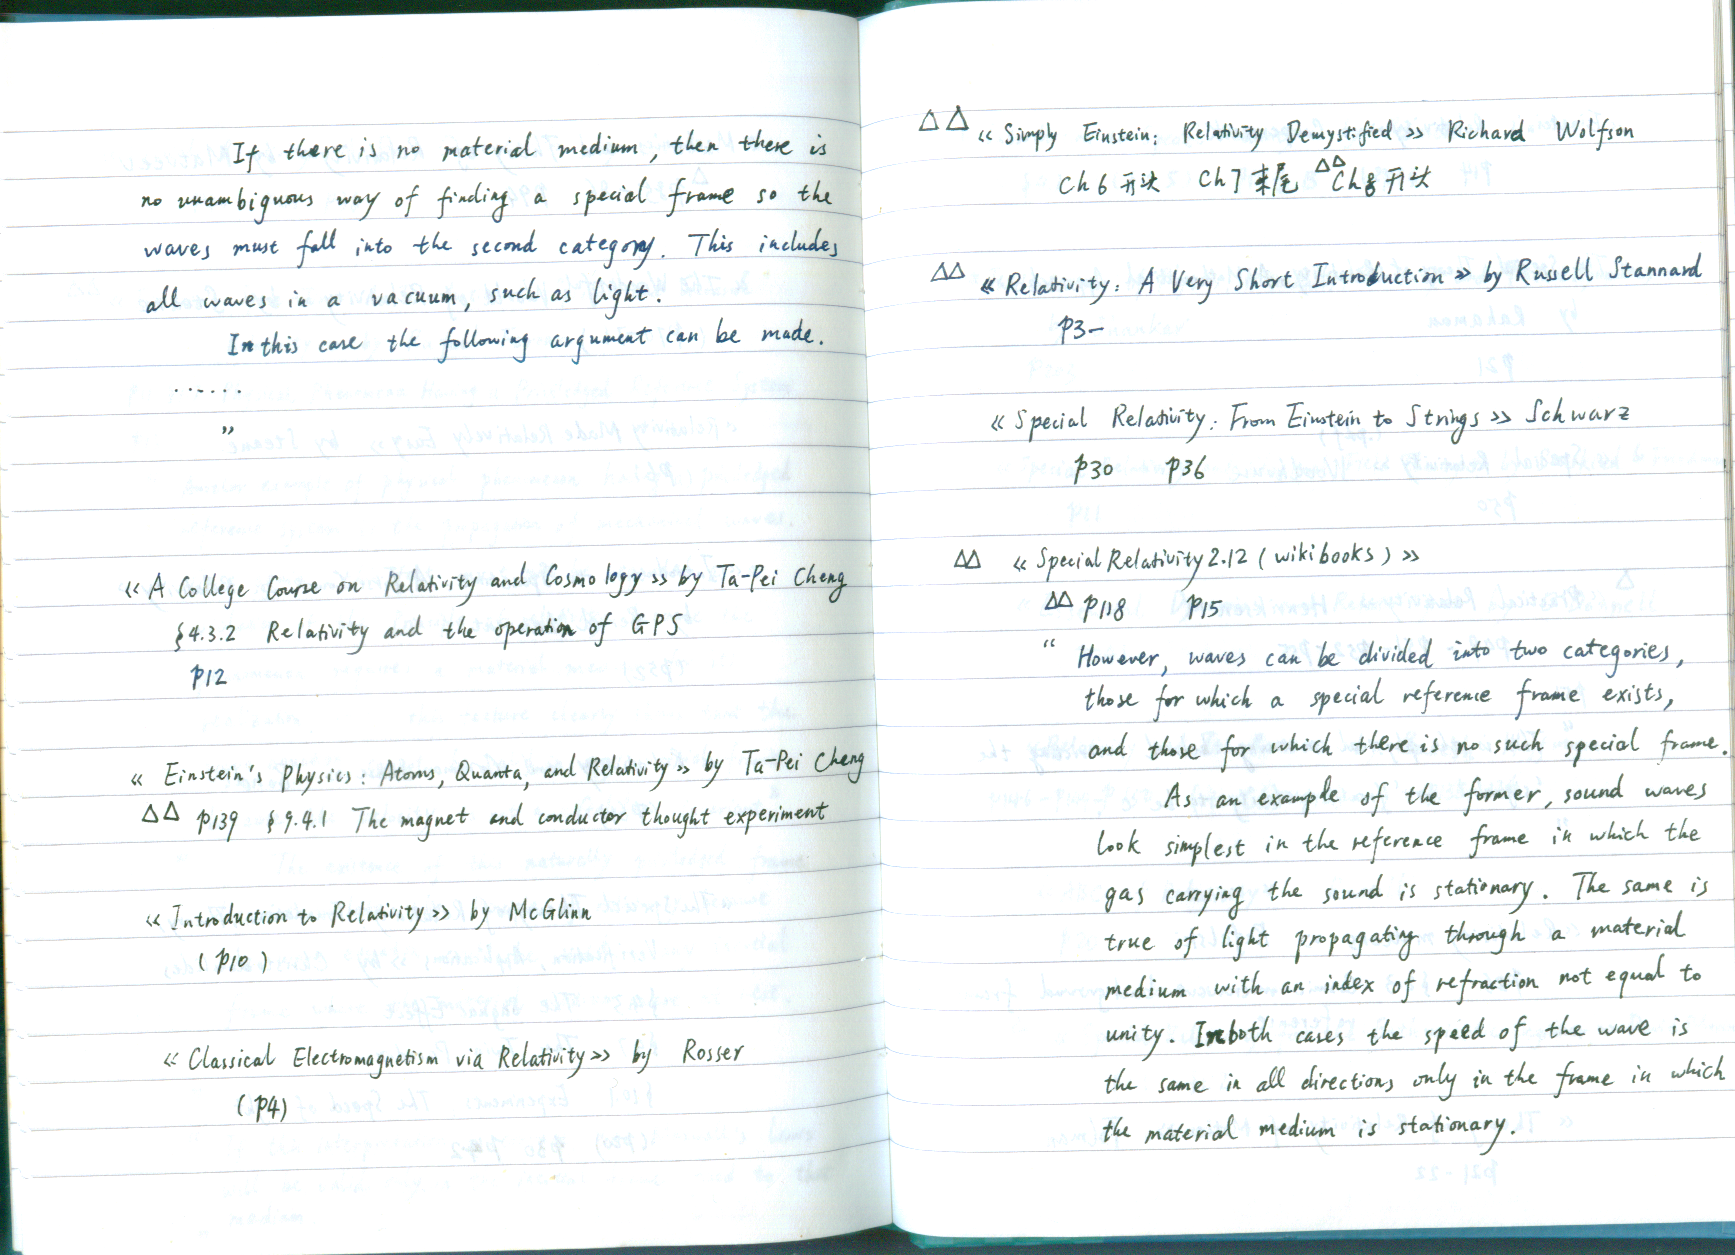 If there is no material medium, then there is
no unambiguous way of finding a special frame so the
waves must fall into the second category. This includes
all waves in a vacuum, such as light.
In this case the following argument can be made.
......
”
《 A College Course on Relativity and Cosmology 》 by Ta-Pei Cheng
§4.3.2 Relativity and the operation of GPS
p12
《 Einstein's Physics: Atoms, Quanta, and Relativity 》 by Ta-Pei Cheng
△△ p139 §9.4.1 The magnet and conductor thought experiment
《 Introduction to Relativity 》 by McGlinn
(p10)
《 Classical Electromagnetism via Relativity 》 by Rosser
(p4)
△△ 《 Simply Einstein: Relativity Demystified 》 Richard Wolfson
Ch6 开头 Ch7 末尾 △△ Ch8 开头
△△ 《 Relativity: A Very Short Introduction 》 by Russell Stannard
p3-
《 Special Relativity: From Einstein to Strings 》 Schwarz
p30 p36
△△ 《 Special Relativity 2.12 (wikibooks) 》
△△ p118 p15
“ However, waves can be divided into two categories,
those for which a special reference frame exists,
and those for which there is no such special frame.
As an example of the former, sound waves
look simplest in the reference frame in which the
gas carrying the sound is stationary. The same is
true of light propagating through a material
medium with an index of refraction not equal to
unity. In both cases the speed of the wave is
the same in all directions only in the frame in which
the material medium is stationary.